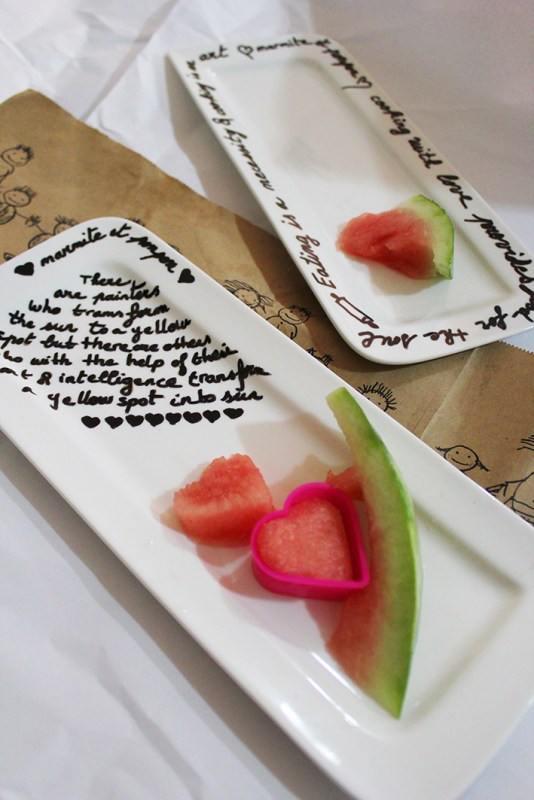 marmite et ponpon
There
are painters
who transform
the sun to a yellow
spot but there are others
who with the help of their
art & intelligence transform
a yellow spot into sun
Eating is a necessity
art
marmite et ponpon
cooking with love
for the